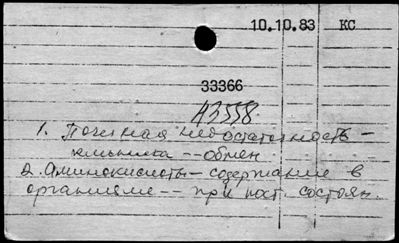 10.10.83 КС
33366
43558.
1. Почечная недостаточность –
клиника -- обмен
2. Аминокислоты – содержание в
организме -- при пат. состоян.